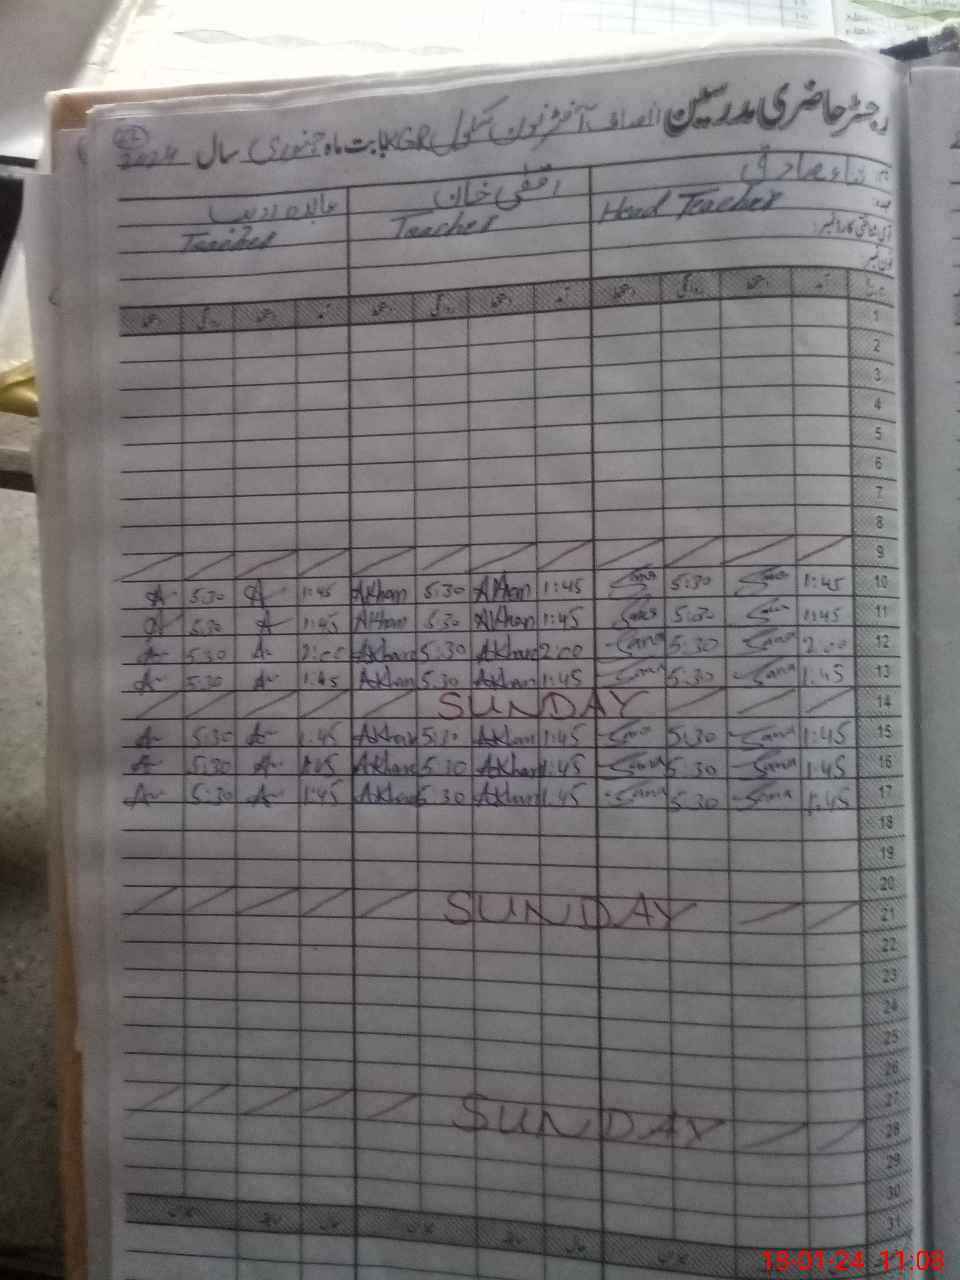 رجسٹر حاضری مدرسین انصاف آفٹر نون سکول KGR بابت ماہ جنوری سال 2024
ثناء صادق اقصٰی خان عابدہ ادیب
Head Teacher Teacher Teacher
آمد دستخط روانگی دستخط آمد دستخط روانگی دستخط آمد دستخط روانگی دستخط
1
2
3
4
5
6
7
8
9
A 5:30 A 1:45 AKhan 5:30 AKhan 1:45 Sana 5:30 Sana 1:45 10
A 5:30 A 1:45 AKhan 5:30 AKhan 1:45 Sana 5:30 Sana 1:45 11
A 5:30 A 2:00 AKhan 5:30 AKhan 2:00 Sana 5:30 Sana 2:00 12
A 5:30 A 1:45 AKhan 5:30 AKhan 1:45 Sana 5:30 Sana 1:45 13
SUNDAY 14
A 5:30 A 1:45 AKhan 5:30 AKhan 1:45 Sana 5:30 Sana 1:45 15
A 5:30 A 1:45 AKhan 5:30 AKhan 1:45 Sana 5:30 Sana 1:45 16
A 5:30 A 1:45 AKhan 5:30 AKhan 1:45 Sana 5:30 Sana 1:45 17
18
19
20
SUNDAY 21
22
23
24
25
26
27
SUNDAY 28
29
30
31
18-01-24 11:08